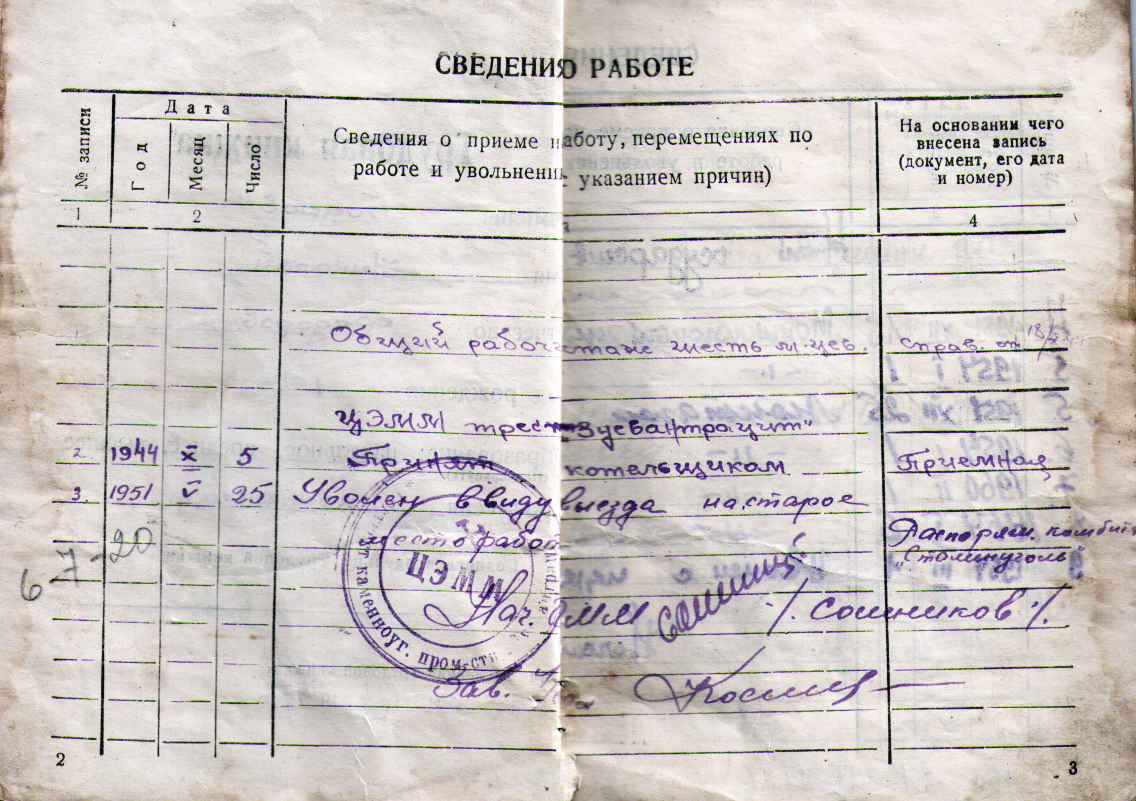 СВЕДЕНИЯ О РАБОТЕ
№ записи
Дата
Год
Месяц
Число
Сведения о приеме на работу, перемещениях по
работе и увольнении с указанием причин)
На основании чего
внесена запись
(документ, его дата
и номер)
1 2 3 4
1. Общий рабоч стаж шесть м-цев. Справ. от 18/
ЦЭММ трест "Зуевантрацит"
2. 1944 X 5 Принят котельщиком Приемная
3. 1951 V 25 Уволен ввиду выезда на старое
место работ Распоряж. комбин
"Сталинуголь"
6-7-20
ЦЭММ
каменноуг. пром-сти
Нач. ЦЭММ /. Сошников /.
Зав.
2
3